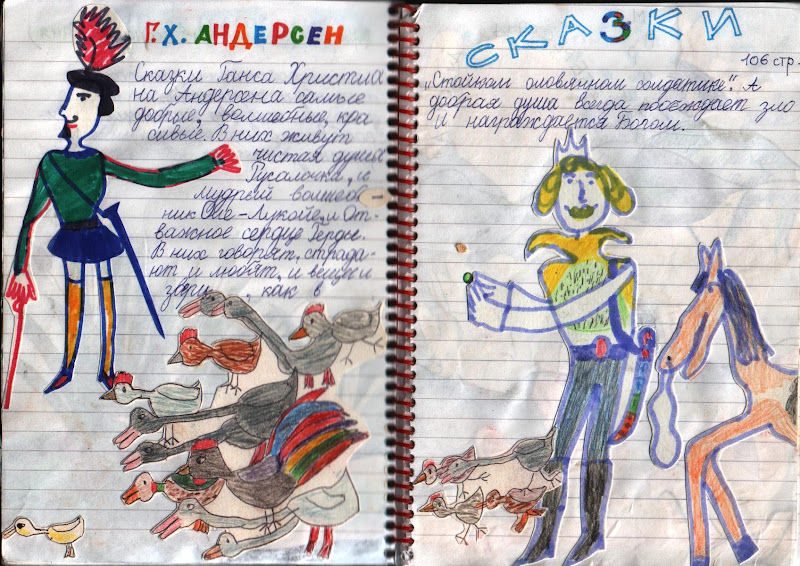 Г.Х. АНДЕРСЕН
Сказки Ганса Христиа
на Андерсена самые
добрые, волшебные, кра
сивые. В них живут
чистая душа
Русалочки, и
мудрый волшеб
ник Оле-Лукойе, и От-
важное сердце Герды.
В них говорят, страда-
ют и любят, и вещи и
звери, как в
СКАЗКИ
106 стр.
"Стойком оловянном солдатике". А
добрая душа всегда побеждает зло
и награждается Богом.